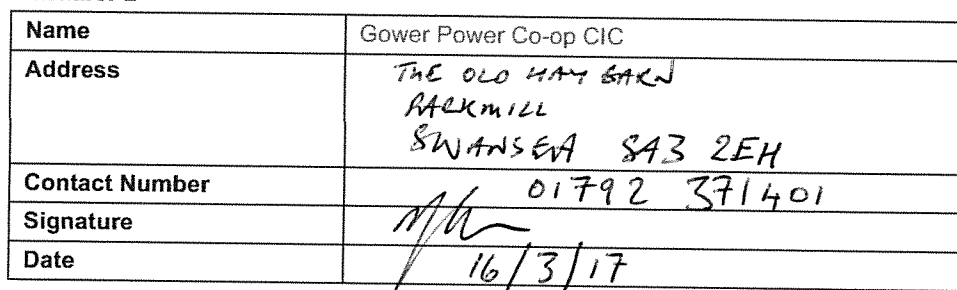 Name Gower Power Co-op CIC
Address THE OLD HAY BARN
PARKMILL
SWANSEA SA3 2EH
Contact Number 01792 371401
Signature
Date 16/3/17